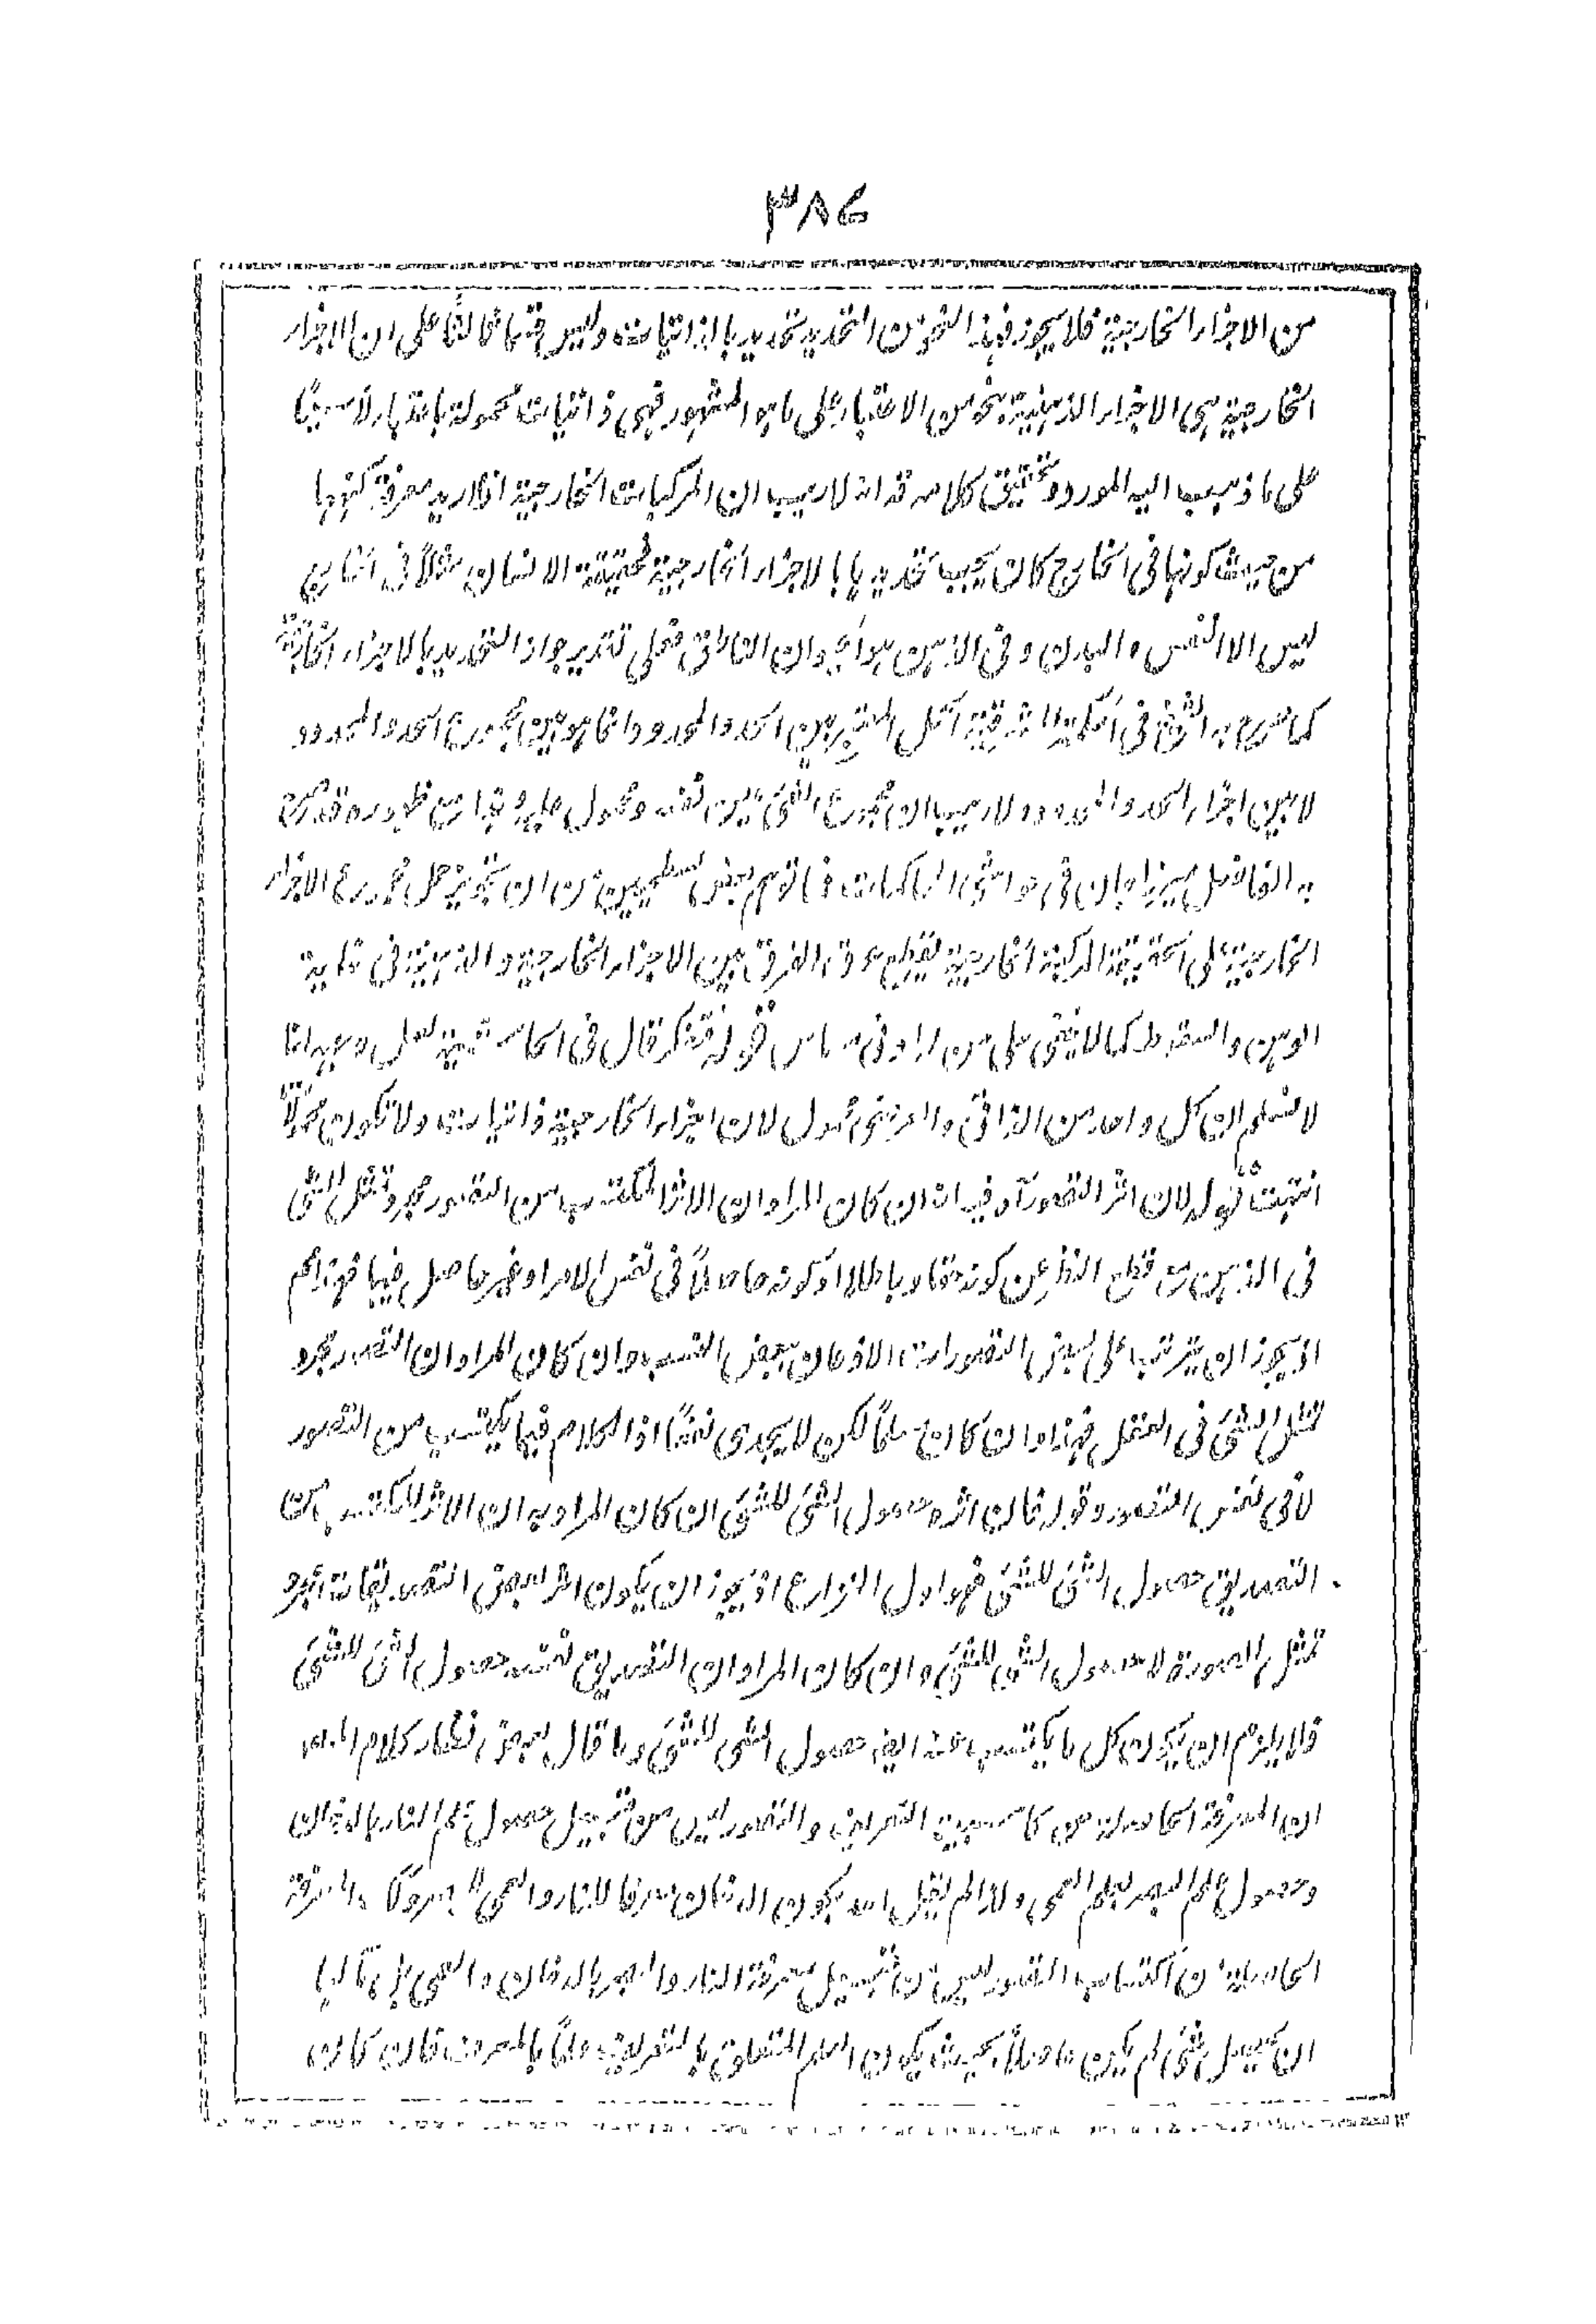 ٣٨٦
من الاجزاء الخارجية فلا يجوز فهذا النحو من التحديد تحديد بالذاتيات وليس قسما ثالثا على ان الاجزاء
الخارجية هى الاجزاء الذهنية بنحو من الاعتبار على ما هو المشهور فهى ذاتيات محمولة باعتبار لا سيما
على ما ذهب اليه المورد وتحقيق كلامه قد انه لا ريب ان المركبات الخارجية اذا اريد معرفة كنهها
من حيث كونها فى الخارج كان يجب تحديدها بالاجزاء الخارجية فحقيقة الانسان مثلاً فى الخارج
ليس الا النفس والبدن و فى الذهن هو الحيوان الناطق فعلى تقدير جواز التحديد بالاجزاء الخارجية
كما صرح به الشيخ فى الحكمة المشرقية الحمل المعتبر بين الحد والمحدود انما هو بين مجموع الحد والمحدود
لا بين اجزاء الحد والمحدود ولا ريب ان مجموع الشئ عين نفسه ومحمول عليه وهذا مع ظهوره قد صرح
به الفاضل ميرزا جان فى حواشى المحاكمات فما توهم بعض من ان تجويز حمل مجموع الاجزاء
الخارجية على الحقيقة المركبة الخارجية يقطع عرق الفرق بين الاجزاء الخارجية والذهنية فى غاية
الوهن والسقوط كما لا يخفى على من له ادنى مساس قوله فتفكر قال فى الحاشية
لا نسلم ان كل واحد من الذاتى والعرضى محمول لان اجزاء الخارجية ذاتيات ولا تكون محمولاً
انتهت قوله لان اثر التصور آه فيه انه ان كان المراد ان الاثر المكتسب من التصور مجرد تمثل الشئ
فى الذهن مع قطع النظر عن كونه حقا و باطلا او كونه حاصلاً فى نفس الامر او غير حاصل فيها فهو
اذ يجوز ان يترتب على بعض التصورات الاذعان ببعض النسب وان كان المراد ان التصور مجرد
تمثل الشئ فى العقل فهذا وان كان مسلماً لكن لا يجدى نفعاً اذ الكلام فيما يكتسب من التصور
لا فى نفس التصور وقوله فان اثره حصول الشئ للشئ ان كان المراد به ان الاثر المكتسب من
التصديق حصول الشئ للشئ فهو اول النزاع اذ يجوز ان يكون اثر بعض التصديقات مجرد
تمثل الصورة لا حصول الشئ للشئ وان كان المراد ان التصديق نفسه حصول الشئ للشئ
فلا يلزم ان يكون كل ما يكتسب عنه ايضا حصول الشئ للشئ وما قال بعض نظار كلام المصر
ان المعرفة الحاصلة من كاسبية التعريف والتصور ليس من قبيل حصول علم النار بالدخان
وحصول علم البصر بعلم العمى ولذا لم يقل احد بكون الدخان معرفا للنار والعمى للبصر والمعرفة
الحاصلة من اكتساب التصور ليس من قبيل معرفة النار والبصر بالدخان والعمى بل
ان يحصل شئ لم يكن حاصلاً بحيث يكون العلم المتعلق بالتعريف علماً بالمعرف فان كان